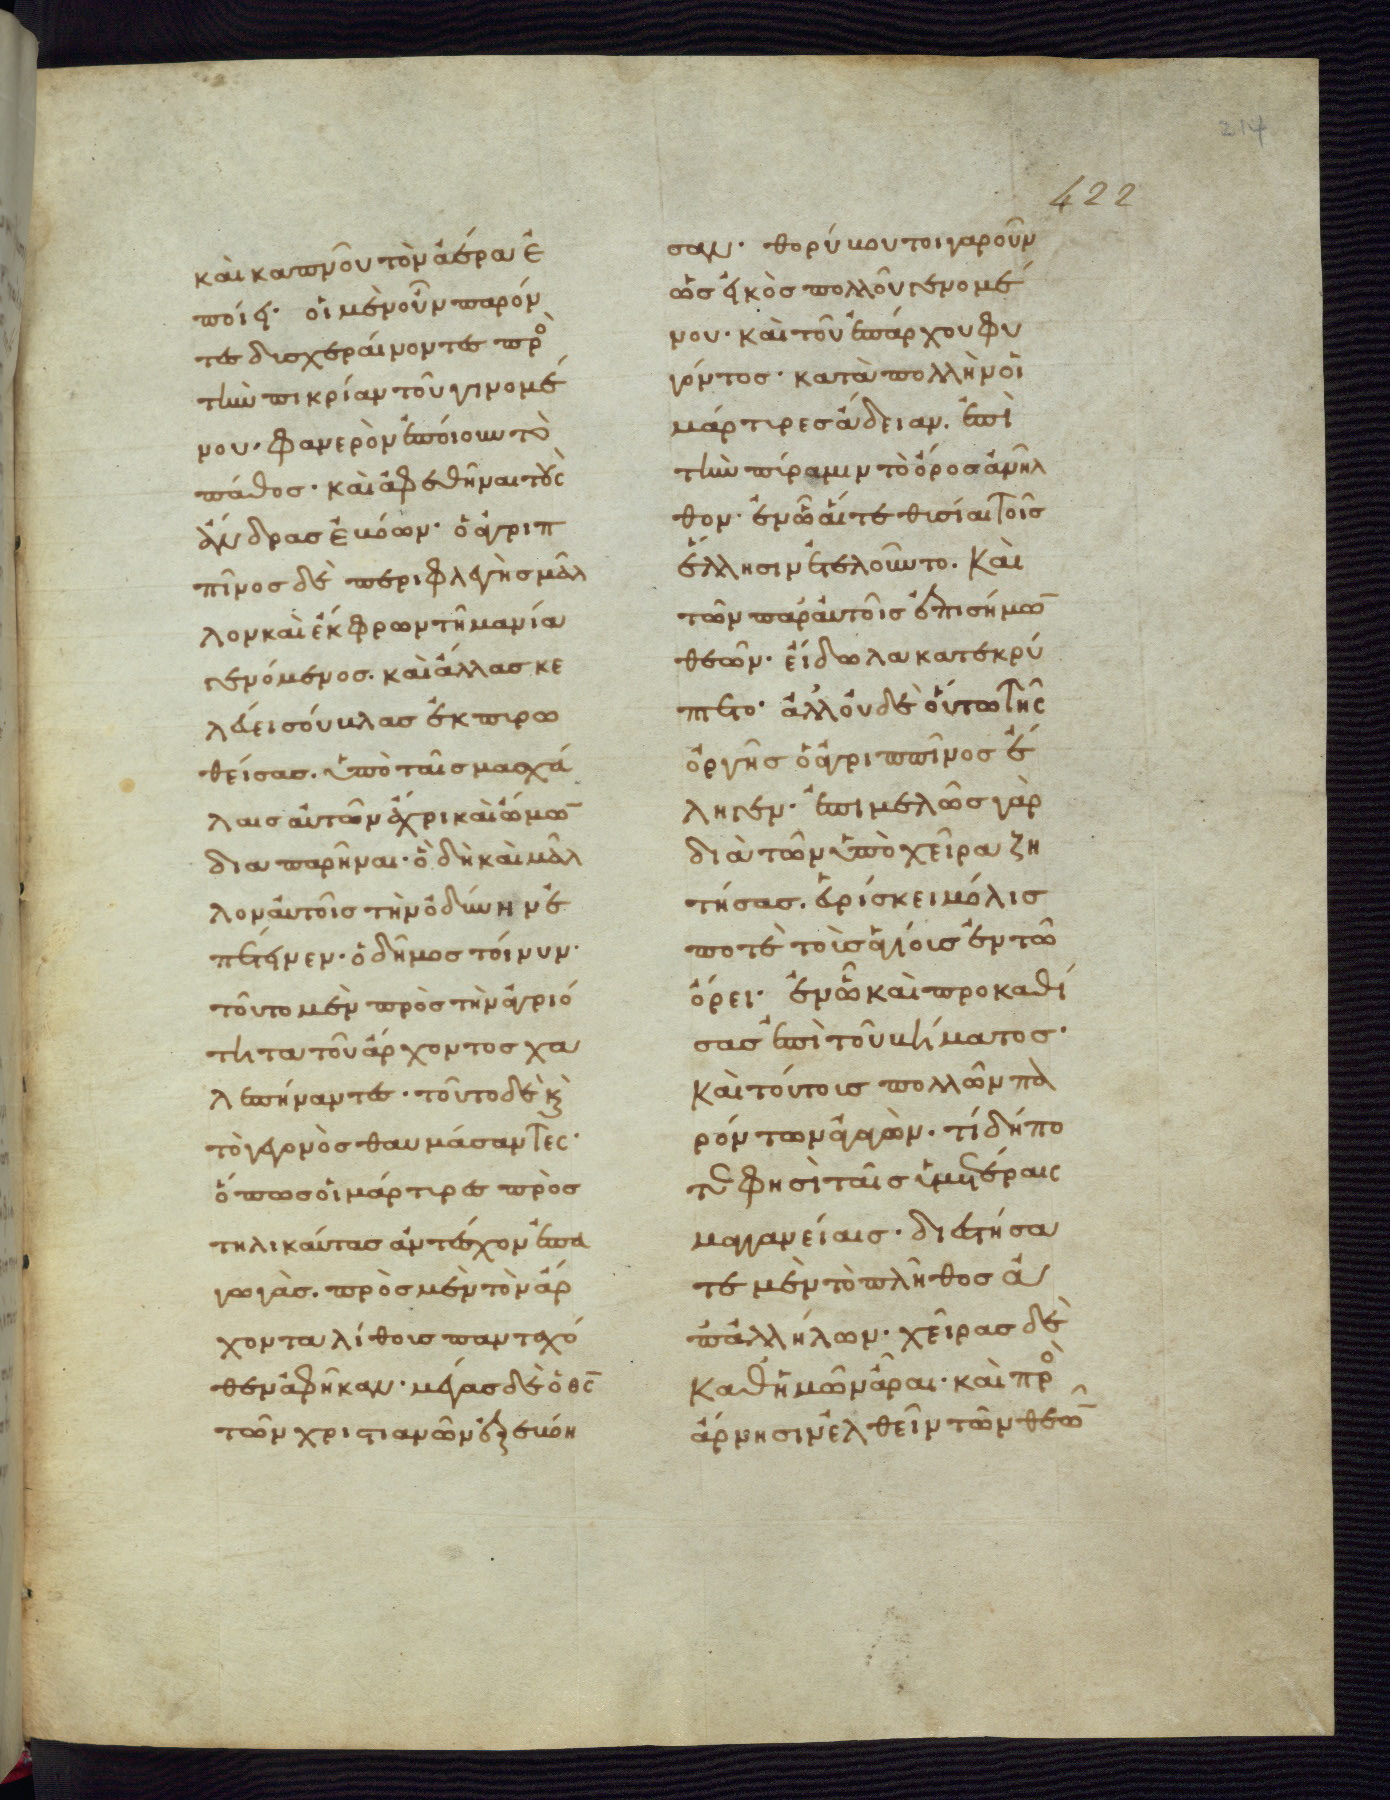 214
422
καὶ καπνοῦ τὸν ἀέρα ἐ
ποίει· οἱ μὲν οὖν παρόν
τες δισχεραίνοντες πρὸ
τὴν πικρίαν τοῦ γινομέ
νου· φανερὸν ἐποίουν τὸ
πάθος· καὶ ἀφεθῆναι τοὺς
ἄνδρας ἐβόων· ὁ ἀγριπ
πῖνος δὲ περιφλεγὴς μᾶλ
λον καὶ ἔκφρων τῆ μανία
γενόμενος· καὶ ἄλλας κε
λεύει σούβλας ἐκπιρω
θείσας· ὑπὸ ταῖς μασχά
λαις αὐτῶν ἄχρι καὶ ὤμω̅
διαπαρῆναι· ὃ δὴ καὶ μᾶλ
λον αὐτοῖς τὴν ὀδύνην ἐ
πέτεινεν· ὁ δῆμος τοίνυν·
τοῦτο μὲν πρὸς τὴν ἀγριό
τητα τοῦ ἄρχοντος χα
λεπήναντες· τοῦτο δὲ κ̀
τὸ γεγονὸς θαυμάσαντες·
ὅπως οἱ μάρτιρες πρὸς
τηλικαύτας ἀντέχον ἐπα
γωγὰς· πρὸς μὲν τὸν ἄρ
χοντα λίθοις πανταχό
θεν ἀφῆκαν· μέγας δὲ ὁ θ̅ς̅
τῶν χριστιανῶν ἐξεβόη
σαν· θορύβου τοιγαροῦν
ὡς εἰκὸς πολλοῦ γενομέ
νου· καὶ τοῦ ἐπάρχου φυ
γόντος· κατὰ πολλὴν οἱ
μάρτιρες ἄδειαν· ἐπὶ
τὴν πίραμιν τὸ ὄρος ἀνῆλ
θον· ἐν ᾧ αἵ τε θισίαι τοῖς
ἕλλησιν ἐτελοῦντο· Καὶ
τῶν παρ᾽ αὐτοῖς ἐπισήμω̅
θεῶν· εἴδωλα κατεκρύ
πτετο· ἀλλ᾽ οὐδὲ οὕτω τῆς
ὀργῆς ὁ ἀγριππῖνος ἔ
ληγεν· ἐπιμελῶς γὰρ
διὰ τῶν ὑπὸ χεῖρα ζη
τήσας· εὑρίσκει μόλις
ποτὲ τοὶς ἁγίοις ἐν τῶ
ὄρει· ἐν ᾧ καὶ προκαθί
σας ἐπὶ τοῦ βήματος·
Καὶ τούτοις πολλῶν πα
ρόντων ἀγαγὼν· τί δήπο
τε φησὶ ταῖς ὑμετέραις
μαγανείαις· διεστήσα
τε μὲν τὸ πλῆθος ἀ
π᾽ ἀλλήλων· χεῖρας δὲ
καθ᾽ ἡμῶν ἆραι· καὶ πρὸ
ἄρνησιν ἐλθεῖν τῶν θεῶ̅